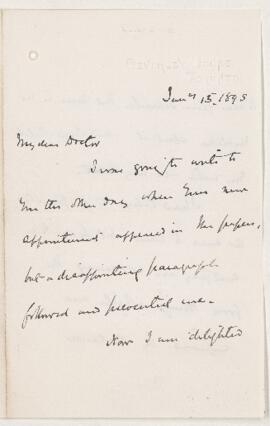 Jany 15, 1895
My dear Doctor
I was going to write to
you the other day when your new
appointment appeared in the papers,
but a disappointing paragraph
followed and prevented me.
Now I am delighted